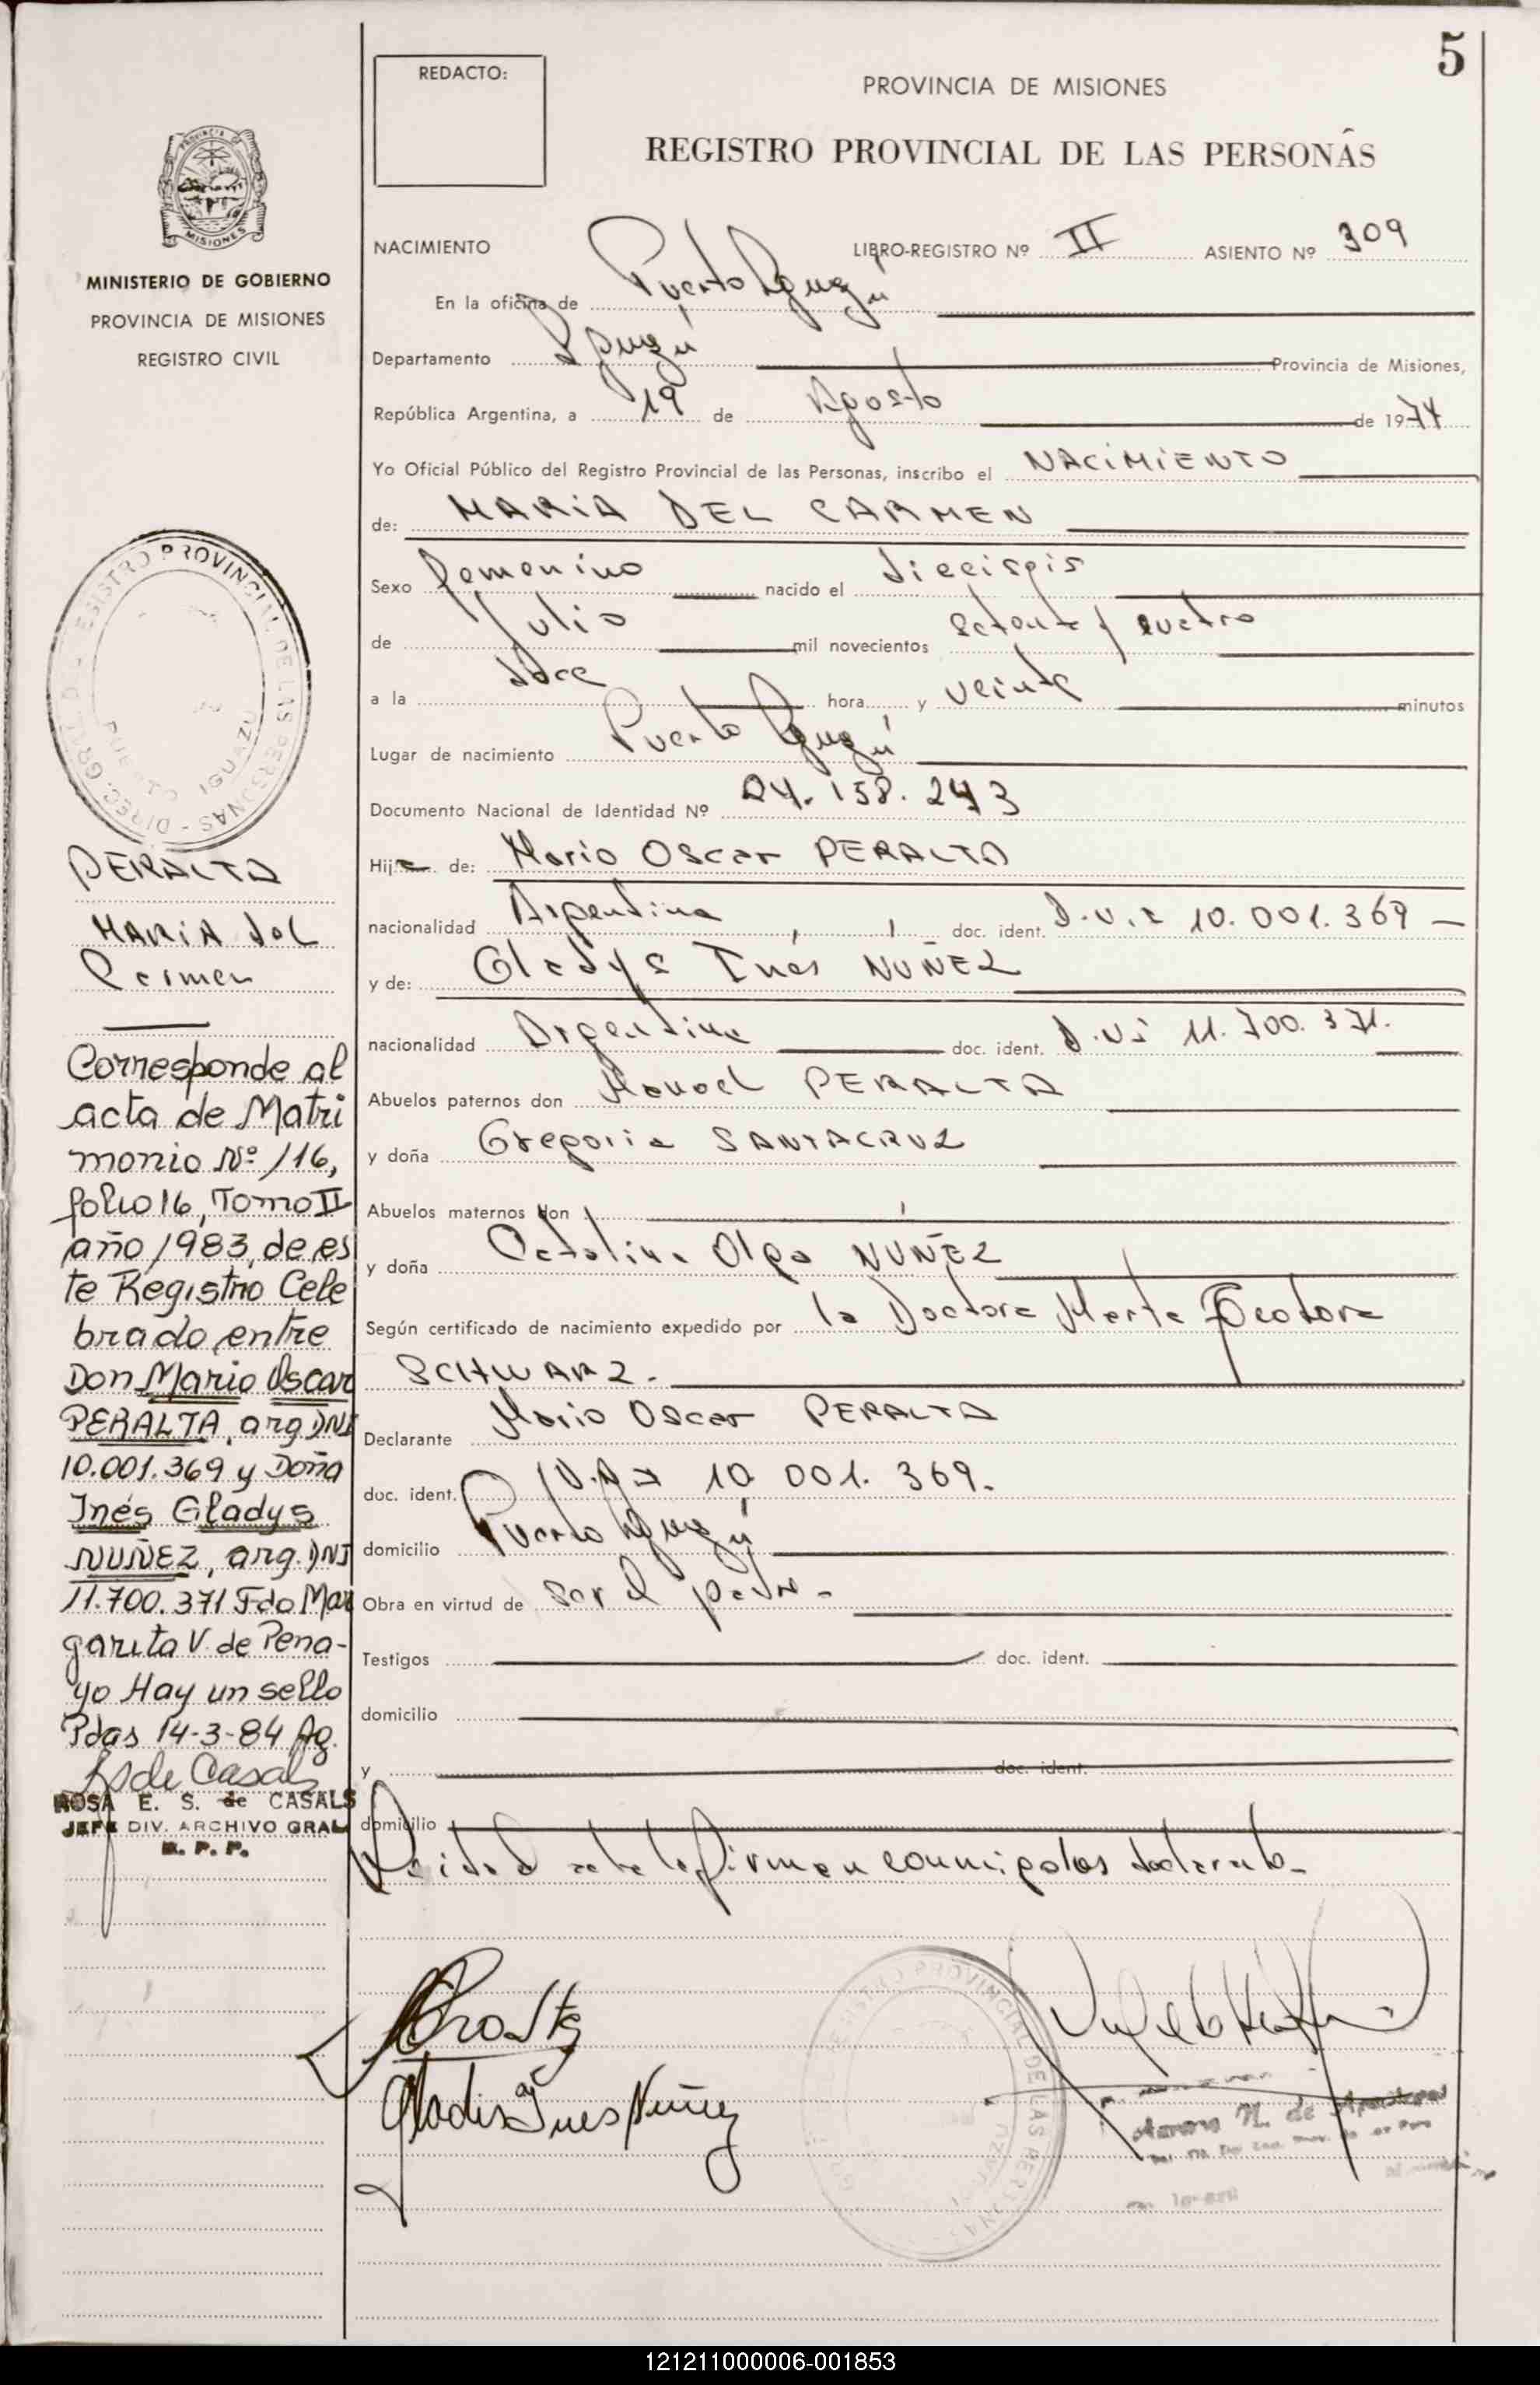 5
REDACTO:
PROVINCIA DE MISIONES
REGISTRO PROVINCIAL DE LAS PERSONAS
MISIONES
MINISTERIO DE GOBIERNO
PROVINCIA DE MISIONES
REGISTRO CIVIL
NACIMIENTO LIBRO-REGISTRO Nº II ASIENTO Nº 309
En la oficina de Puerto Iguazú
Departamento Iguazú Provincia de Misiones,
República Argentina, a 19 de Agosto de 1974
Yo Oficial Público del Registro Provincial de las Personas, inscribo el NACIMIENTO
de: MARIA DEL CARMEN
Sexo Femenino nacido el dieciseis
de Julio mil novecientos setenta y cuatro
a la doce hora y veinte minutos
Lugar de nacimiento Puerto Iguazú
Documento Nacional de Identidad Nº 24.158.243
Hija de: Mario Oscar PERALTA
nacionalidad Argentina doc. ident. D.N.I. 10.001.369
y de: Gladys Inés NUÑEZ
nacionalidad Argentina doc. ident. D.N.I 11.700.371.
Abuelos paternos don Manuel PERALTA
y doña Gregoria SANTACRUZ
Abuelos maternos don
y doña Catalina Olga NUÑEZ
Según certificado de nacimiento expedido por la Doctora Marta Teodora
SCHWARZ.
Declarante Mario Oscar PERALTA
doc. ident. 10.001.369.
domicilio Puerto Iguazú
Obra en virtud de ser el padre
Testigos doc. ident.
domicilio
y doc. ident.
domicilio
Leida el acta la firman conmigo los declarantes
Gladis Ines Nuñez
REGISTRO PROVINCIAL DE LAS PERSONAS
PUERTO IGUAZU
PERALTA
MARIA del
Carmen
Corresponde al
acta de Matri
monio Nº 116,
folio 16, Tomo II
año 1983, de es
te Registro Cele
brado entre
Don Mario Oscar
PERALTA, arg DNI
10.001.369 y Doña
Inés Gladys
NUÑEZ, arg. DNI
11.700.371 Fdo Mar
garita V. de Pena-
yo Hay un sello
Pdas 14-3-84 Ag.
ROSA E. S. de CASALS
JEFE DIV. ARCHIVO GRAL
R. P. P.
121211000006-001853